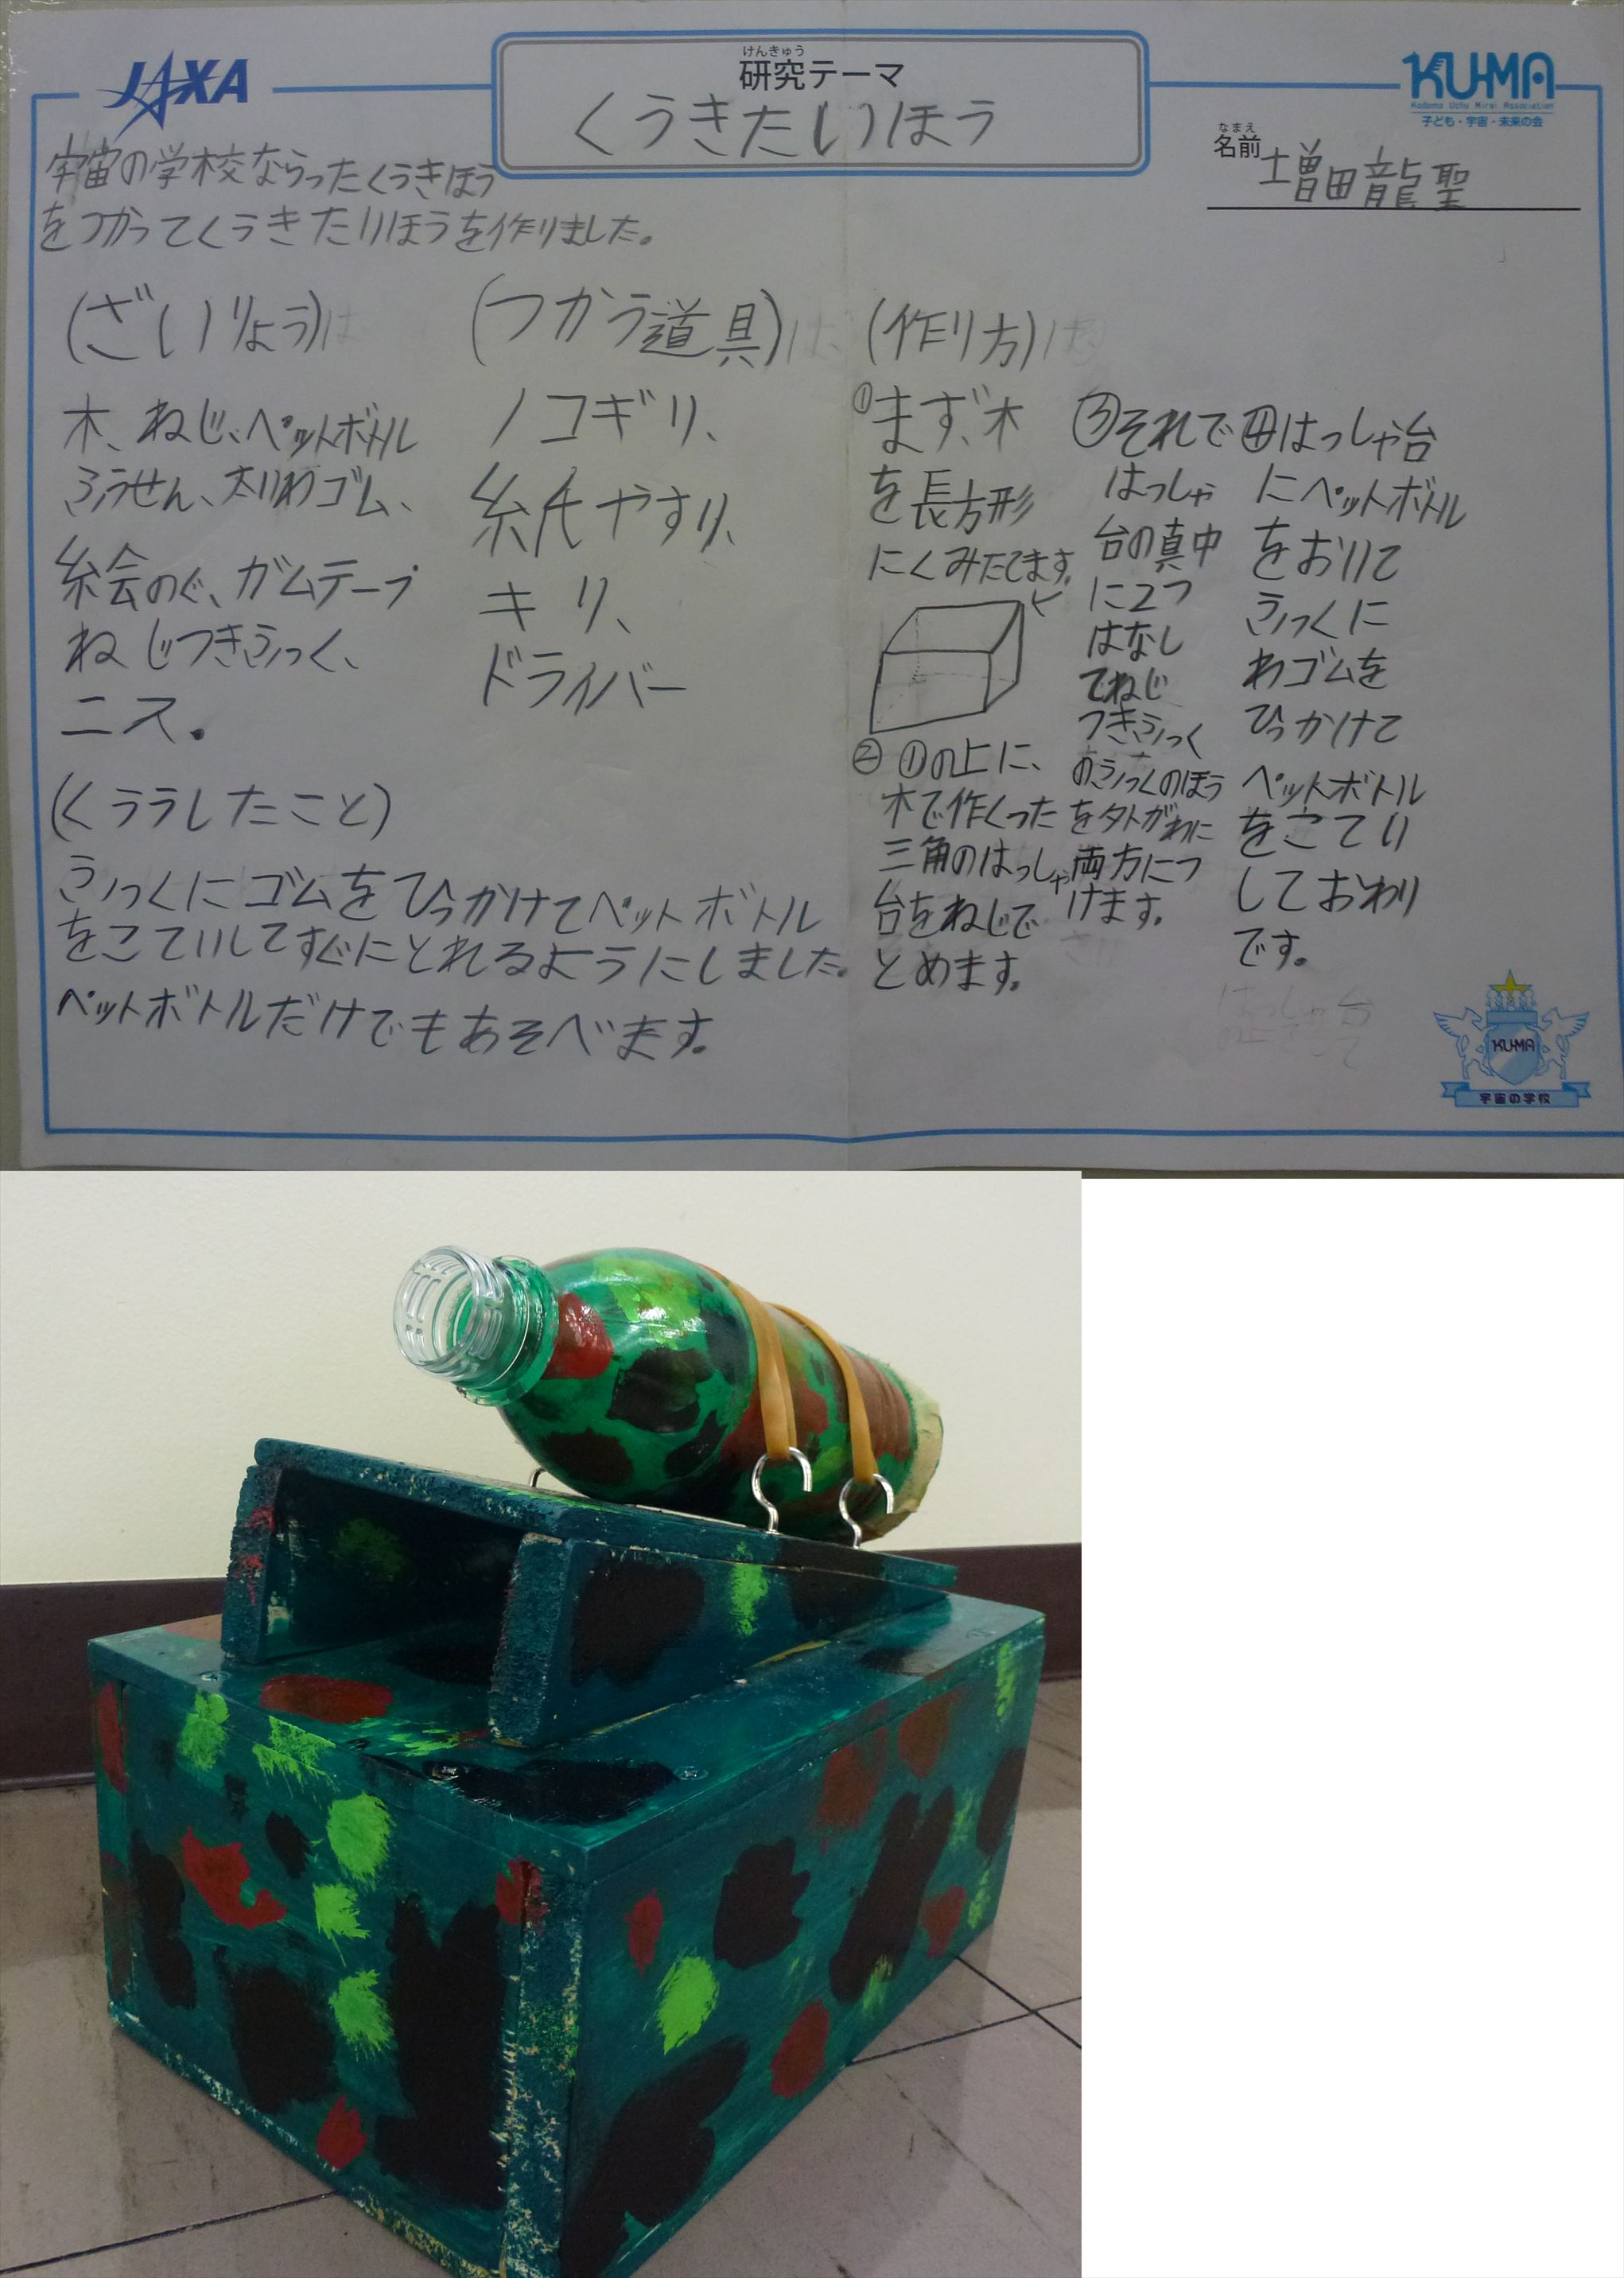 JAXA
けんきゅう
研究テーマ
くうきたいほう
KU-MA
Kodomo Uchu Mirai Association
子ども・宇宙・未来の会
なまえ
名前
増田龍聖
宇宙の学校ならったくうきほう
をつかってくうきたいほうを作りました。
(ざいりょう)
木、ねじ、ペットボトル
ふうせん、太いわゴム、
絵会のぐ、ガムテープ
ねじつきふっく、
ニス。
(つかう道具)
ノコギリ、
紙やすり、
キリ、
ドライバー
(くうらしたこと)
ふっくにゴムをひっかけてペットボトル
をこていしてすぐにとれるようにしました。
ペットボトルだけでもあそべます。
(作り方)
①まず、木
を長方形
にくみたてます。
② ①の上に、
木で作くった
三角のはっしゃ
台をねじで
とめます。
③それで
はっしゃ
台の真中
に2つ
はなし
てねじ
つきふっく
のふっくのほう
を外がわに
両方につ
けます。
④はっしゃ台
にペットボトル
をおいて
ふっくに
わゴムを
ひっかけて
ペットボトル
をこてい
しておわり
です。
KU-MA
宇宙の学校